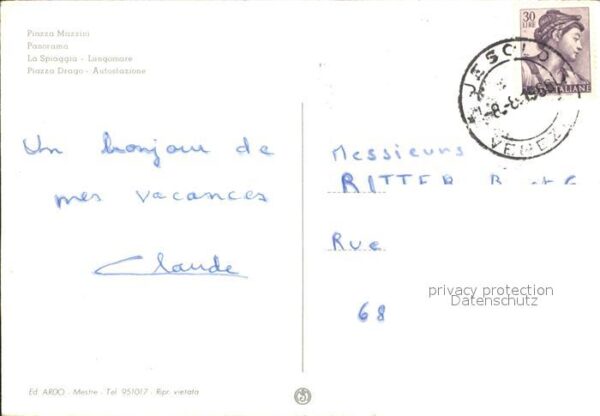 Piazza Mazzini
Panorama
La Spiaggia - Lungomare
Piazza Drago - Autostazione
30
LIRE
ITALIANE
JESOLO
VENEZ
Un bonjour de
mes vacances
Claude
Messieurs
RITTER R et G
Rue
68
privacy protection
Datenschutz
Ed. ARDO - Mestre - Tel. 951017 - Ripr. vietata